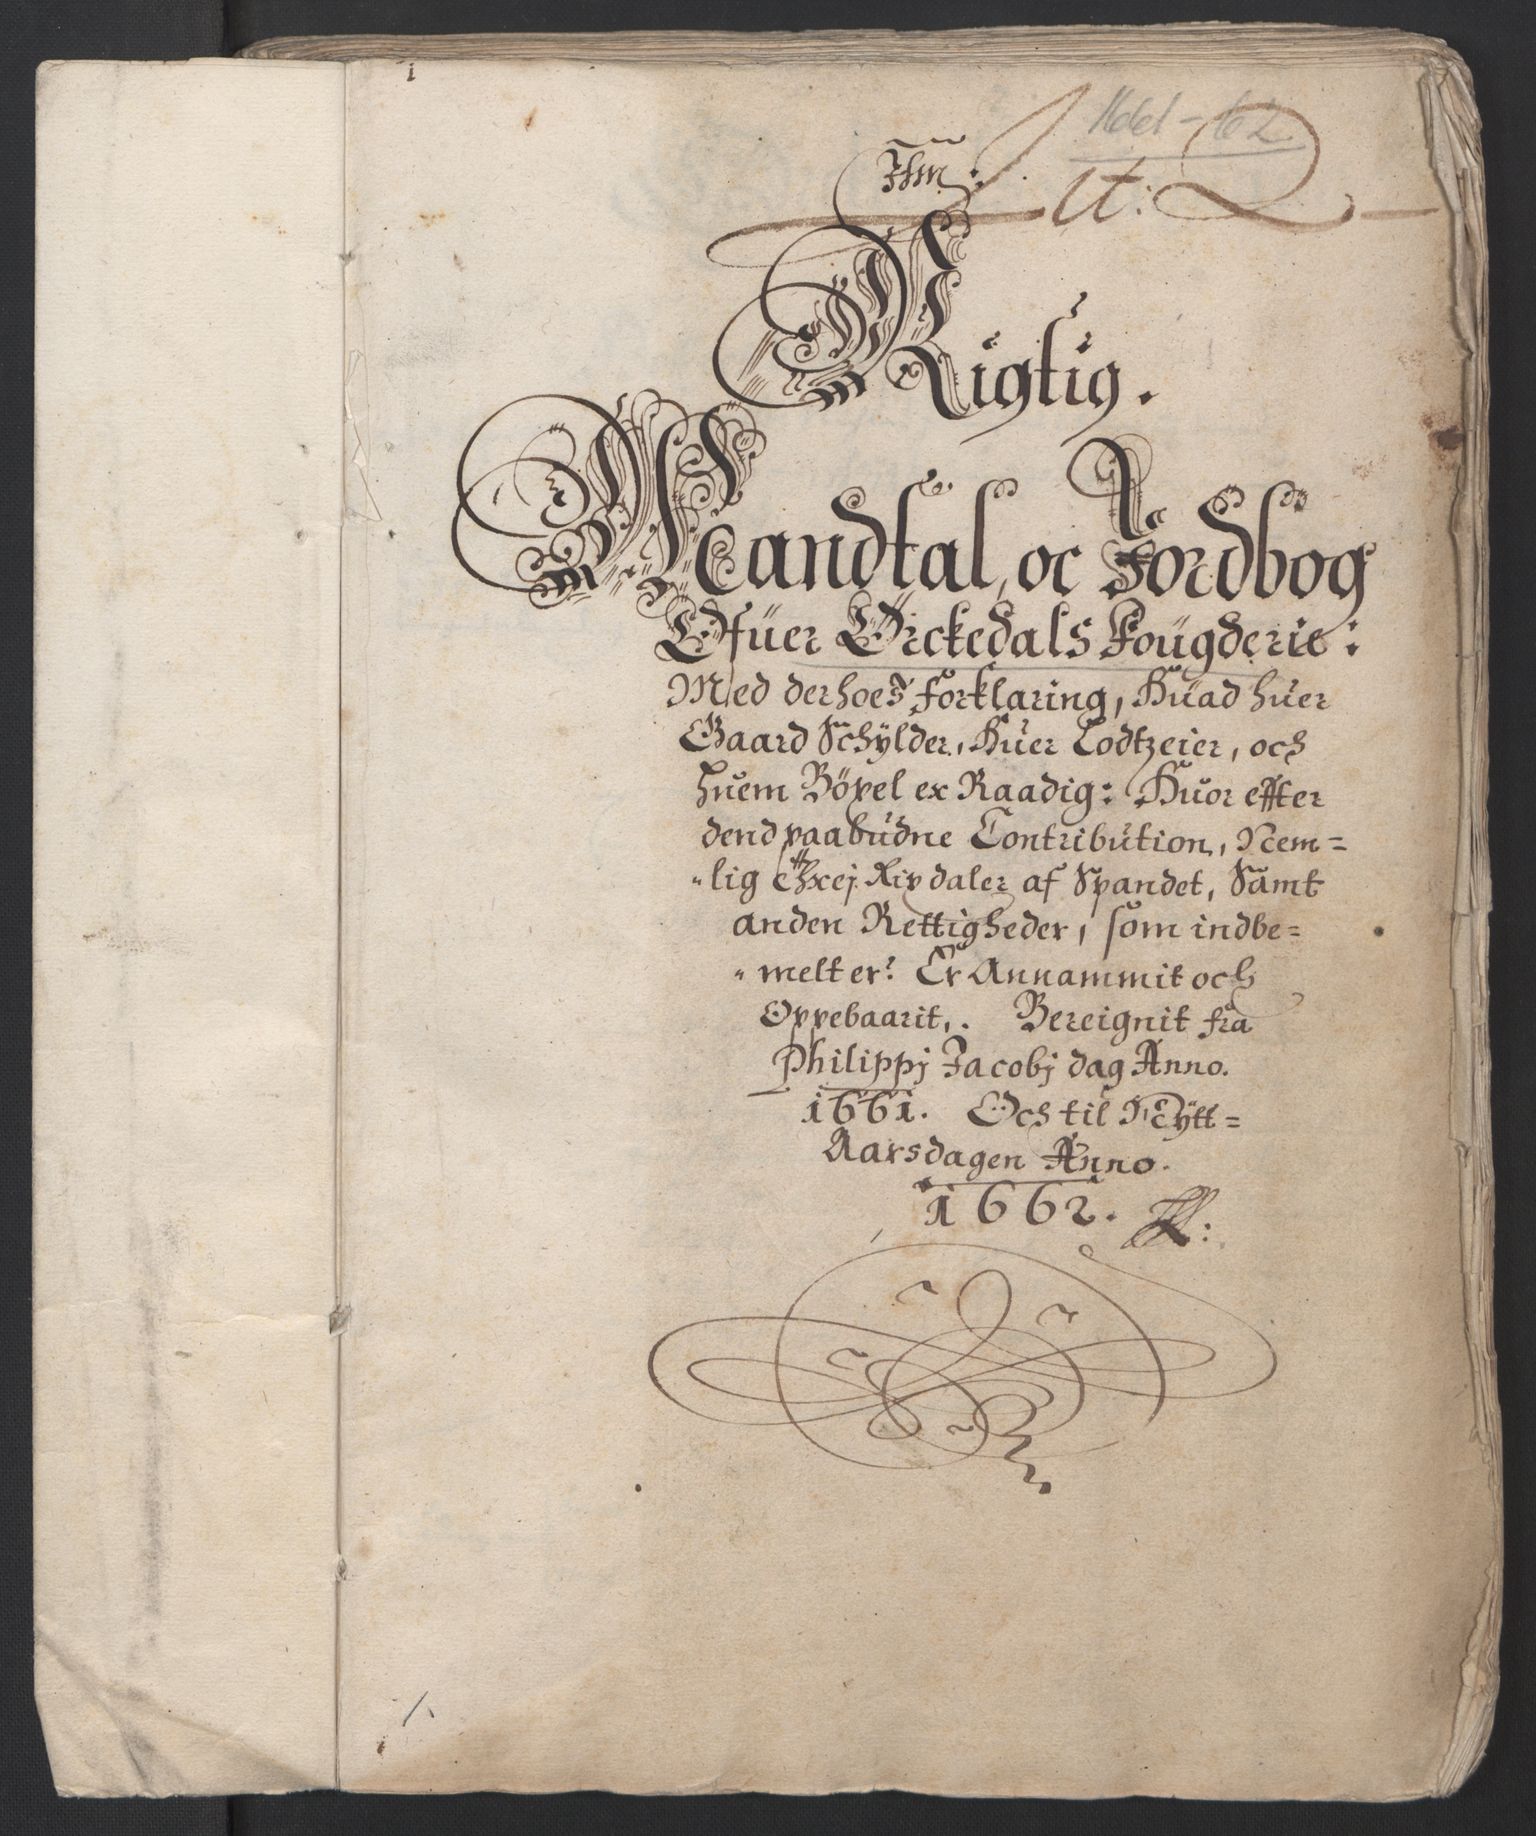 1
1661-62
Lit: Q
Rigtig.
Mandtal, oc Jordbog
Ofüer Ørckedals Fougderie:
Med derhoes Forklaring, Hüad hüer
Gaard Schÿlder, Hüer Lodtzeier, och
hüem Böxel ex Raadig: Huor effter
dend paabüdne Contribution, Nem=
"lig Rix daler af Spandet, Samt
anden Rettigheder, som indbe=
"melt er: Er Annammit och
Oppebaarit,. Bereignit fra
Philippj Jacobj dag Anno.
1661. Och til Nÿtt=
Aarsdagen Anno.
1662.
1